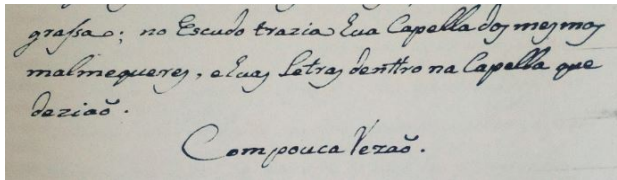 grassa; no Escudo trazia hua Capella dos mesmos
malmequeres, e huas letras denttro na Capella que
deziaõ.
Com pouca Rezaõ.